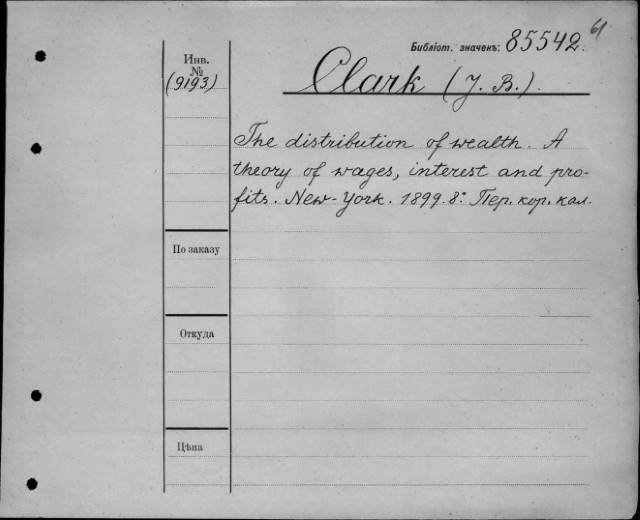 61
Библіот. значекъ: 85542.
Инв.
№
(9193)
Clark (J. B.).
The distribution of wealth. A
theory of wages, interest and pro-
fits. New-York. 1899. 8º Пер. кор. кал.
По заказу
Откуда
Цѣна